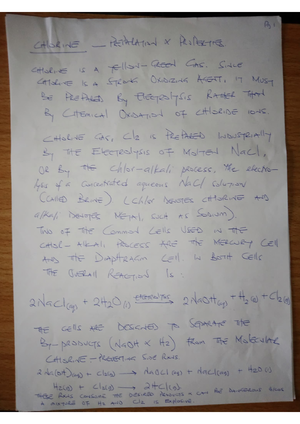 CHLORINE — PREPARATION & PROPERTIES
CHLORINE IS A YELLOW-GREEN GAS. SINCE
CHLORINE IS A STRONG OXIDIZING AGENT, IT MUST
BE PREPARED BY ELECTROLYSIS RATHER THAN
BY CHEMICAL OXIDATION OF CHLORIDE IONS.
CHLORINE GAS, Cl2 IS PREPARED INDUSTRIALLY
BY THE ELECTROLYSIS OF MOLTEN NaCl,
OR BY THE chlor-alkali PROCESS, THE electro-
lysis of a concentrated aqueous NaCl solution
(CALLED BRINE) (Chlor DENOTES CHLORINE AND
alkali DENOTES METAL, SUCH AS SODIUM).
TWO OF THE COMMON CELLS USED IN THE
CHLOR-ALKALI PROCESS ARE THE MERCURY CELL
AND THE DIAPHRAGM CELL IN BOTH CELLS
THE OVERALL REACTION IS:
2NaCl(aq) + 2H2O(l) → 2NaOH(aq) + H2(g) + Cl2(g)
THE CELLS ARE DESIGNED TO SEPARATE THE
BY-PRODUCTS (NaOH & H2) FROM THE MOLECULAR
CHLORINE - SIDE RXNS
2NaOH(aq) + Cl2(g) → NaOCl(aq) + NaCl(aq) + H2O(l)
H2(g) + Cl2(g) → 2HCl(g)
THESE RXNS CONSUME THE DESIRED PRODUCTS & CAN BE DANGEROUS SINCE
A MIXTURE OF H2 AND Cl2 IS EXPLOSIVE.